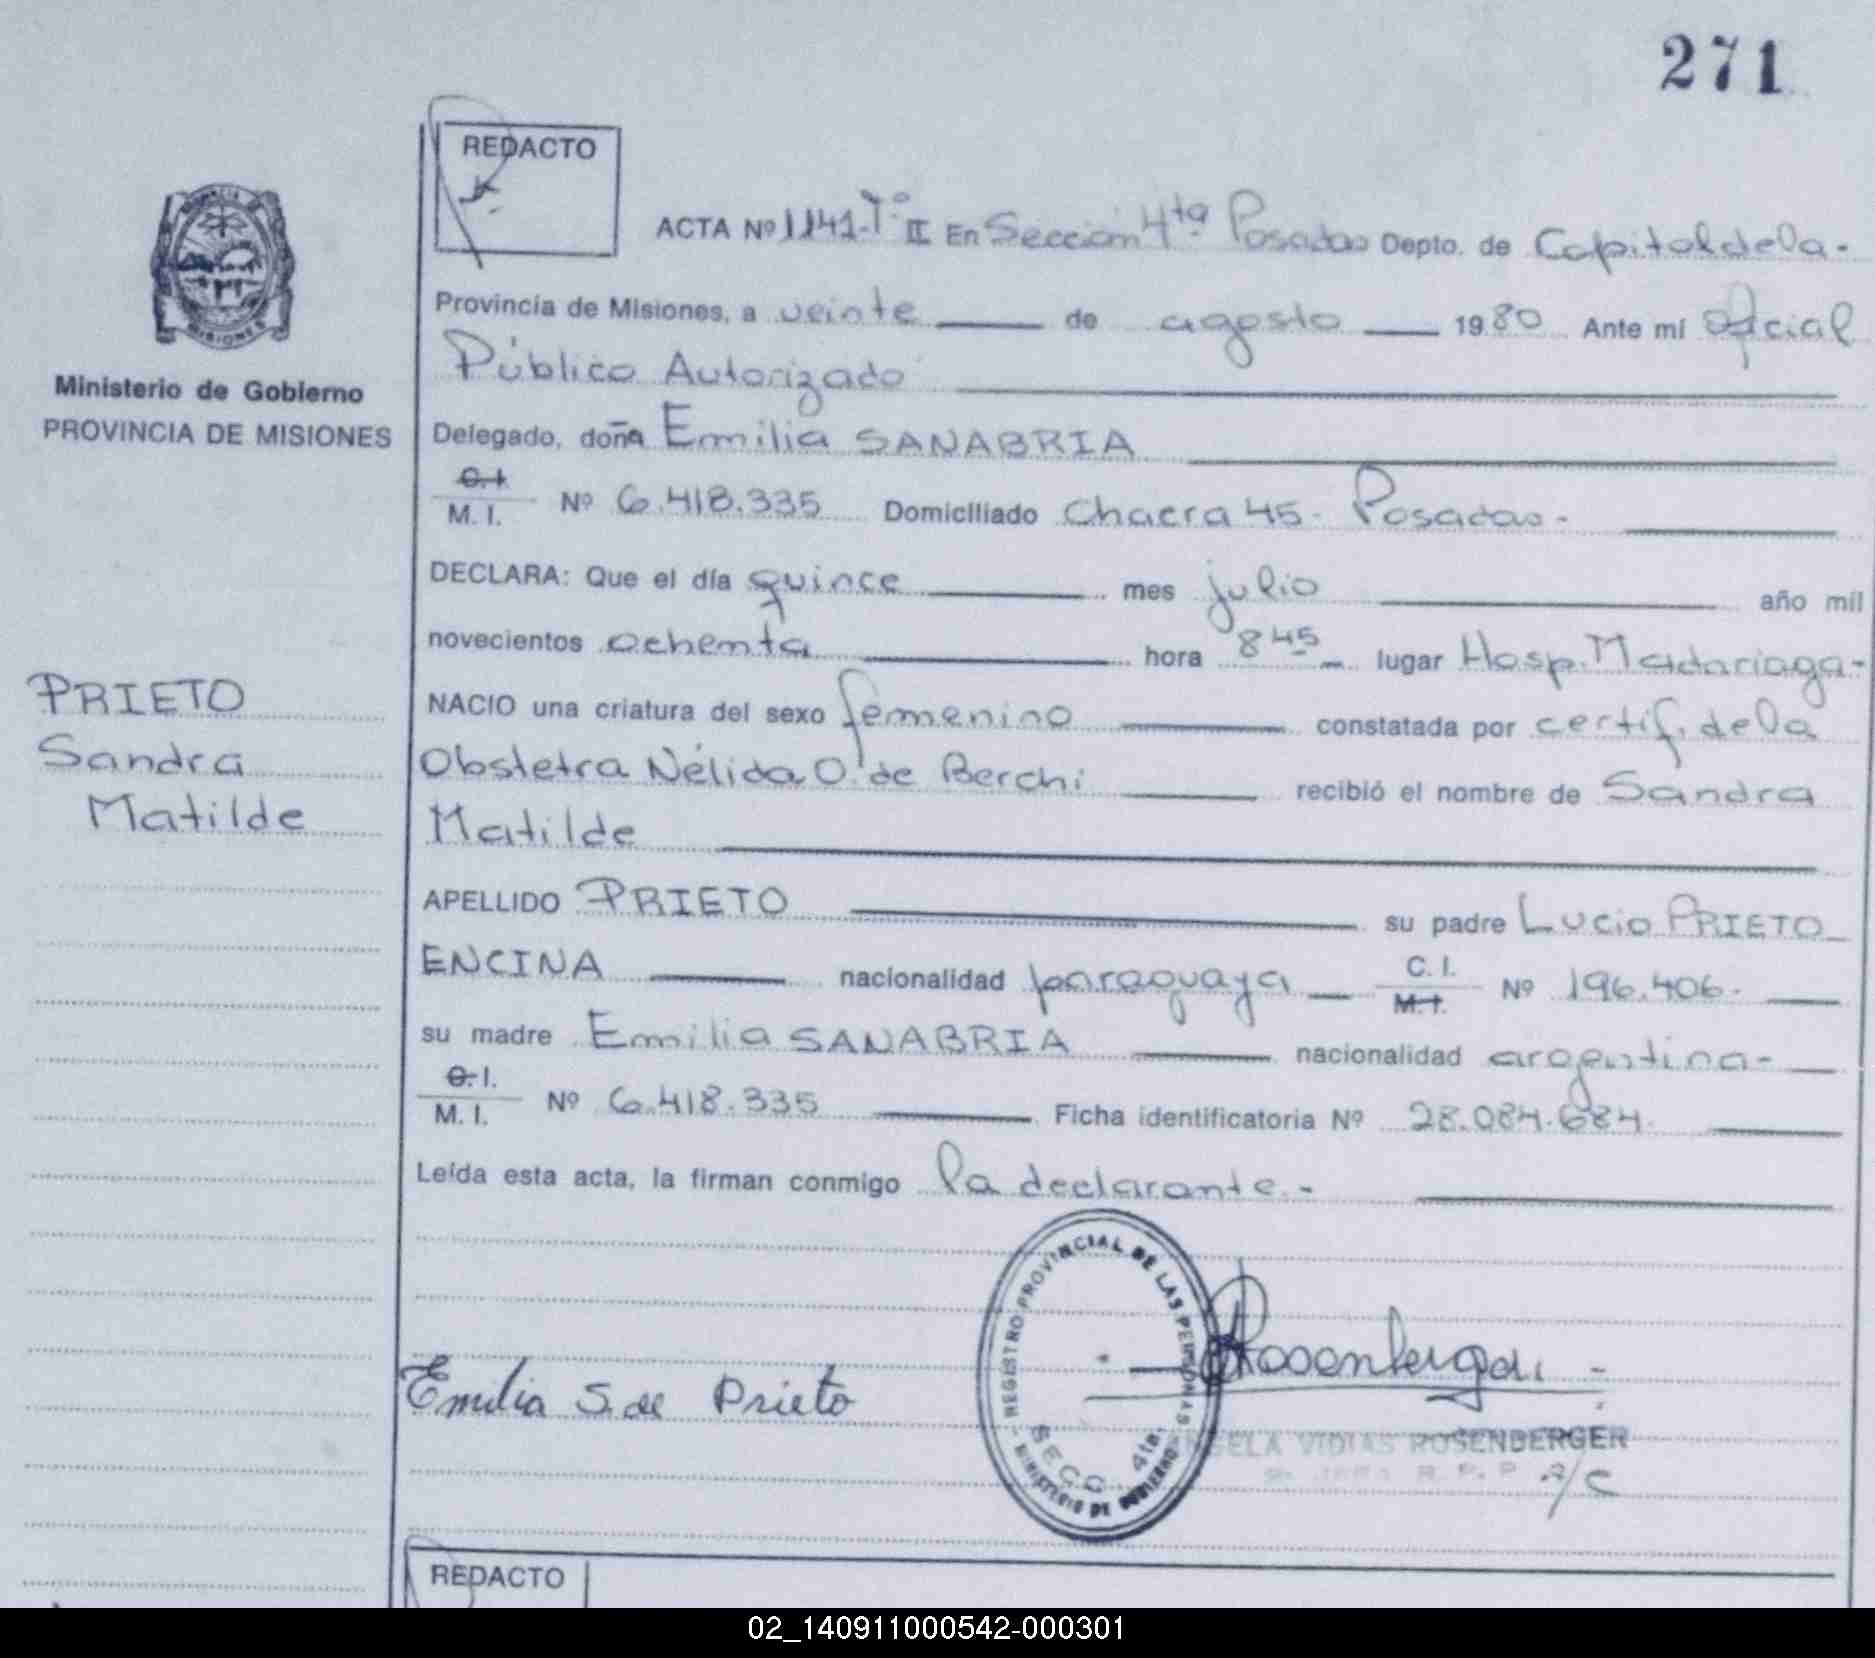 271
REDACTO
ACTA Nº 1141-Tº II En Sección 4ta Posadas Depto. de Capital de la -
Provincia de Misiones, a veinte de agosto 1980 Ante mí Oficial
Público Autorizado
Ministerio de Gobierno
PROVINCIA DE MISIONES
Delegado, doña Emilia SANABRIA
C.I.
M. I. Nº 6.418.335 Domiciliado Chacra 45 - Posadas -
DECLARA: Que el día quince mes julio año mil
novecientos ochenta hora 8 45 lugar Hosp. Madariaga -
PRIETO
Sandra
Matilde
NACIO una criatura del sexo femenino constatada por certif. de la
Obstetra Nélida O. de Berchi recibió el nombre de Sandra
Matilde
APELLIDO PRIETO su padre Lucio PRIETO
ENCINA nacionalidad paraguaya C. I. Nº 196.406 -
M.I.
su madre Emilia SANABRIA nacionalidad argentina -
C. I.
M. I. Nº 6.418.335 Ficha identificatoria Nº 28.084.684.
Leída esta acta, la firman conmigo la declarante. -
REGISTRO PROVINCIAL DE LAS PERSONAS
SECC. 4ta.
MINISTERIO DE GOBIERNO
Emilia S. de Prieto
Rosenberger
ANGELA VIDIAS ROSENBERGER
R. P. P. A/C
REDACTO
02_140911000542-000301